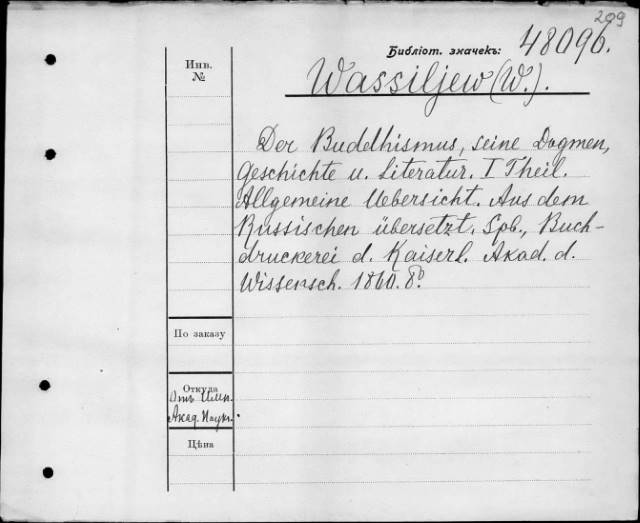 209
Библіот. значекъ: 48096.
Инв.
№
Wassiljew (W.).
Der Buddhismus, seine Dogmen,
Geschichte u. Literatur. I Theil.
Allgemeine Uebersicht. Aus dem
Russischen übersetzt. Spb., Buch-
druckerei d. Kaiserl. Akad. d.
Wissensch. 1860. 8°.
По заказу
Откуда
Отъ Имп.
Акад. Наукъ.
Цѣна